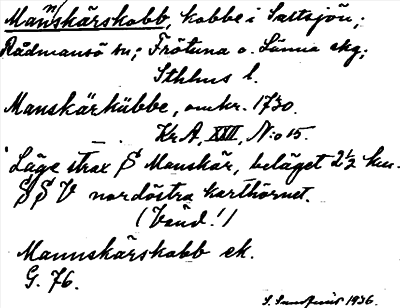 Man(n)skärskobb, kobbe i Saltsjön;
Rådmansö sn; Frötuna o. Länna skg;
Sthlms l.
Manskärkübbe, omkr. 1730.
Kr A, XXIII, N:o 15.
Läge strax S Manskär, beläget 2½ km.
SSV nordöstra karthörnet.
(Vänd!)
Mannskärskobb ek.
G. 76.
1936.